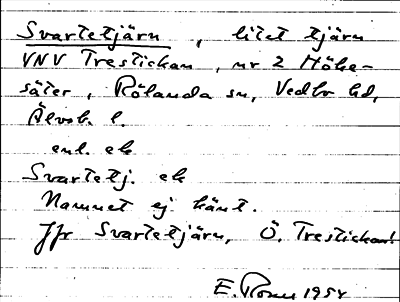 Svartetjärn, litet tjärn
VNV Trestickan, nr 2 Höhe-
säter, Rölanda sn, Vedbo hd,
Älvsb. l.
enl. ek
Svartetj. ek
Namnet ej känt.
Jfr Svartetjärn, Ö. Trestickan!
E. 1954